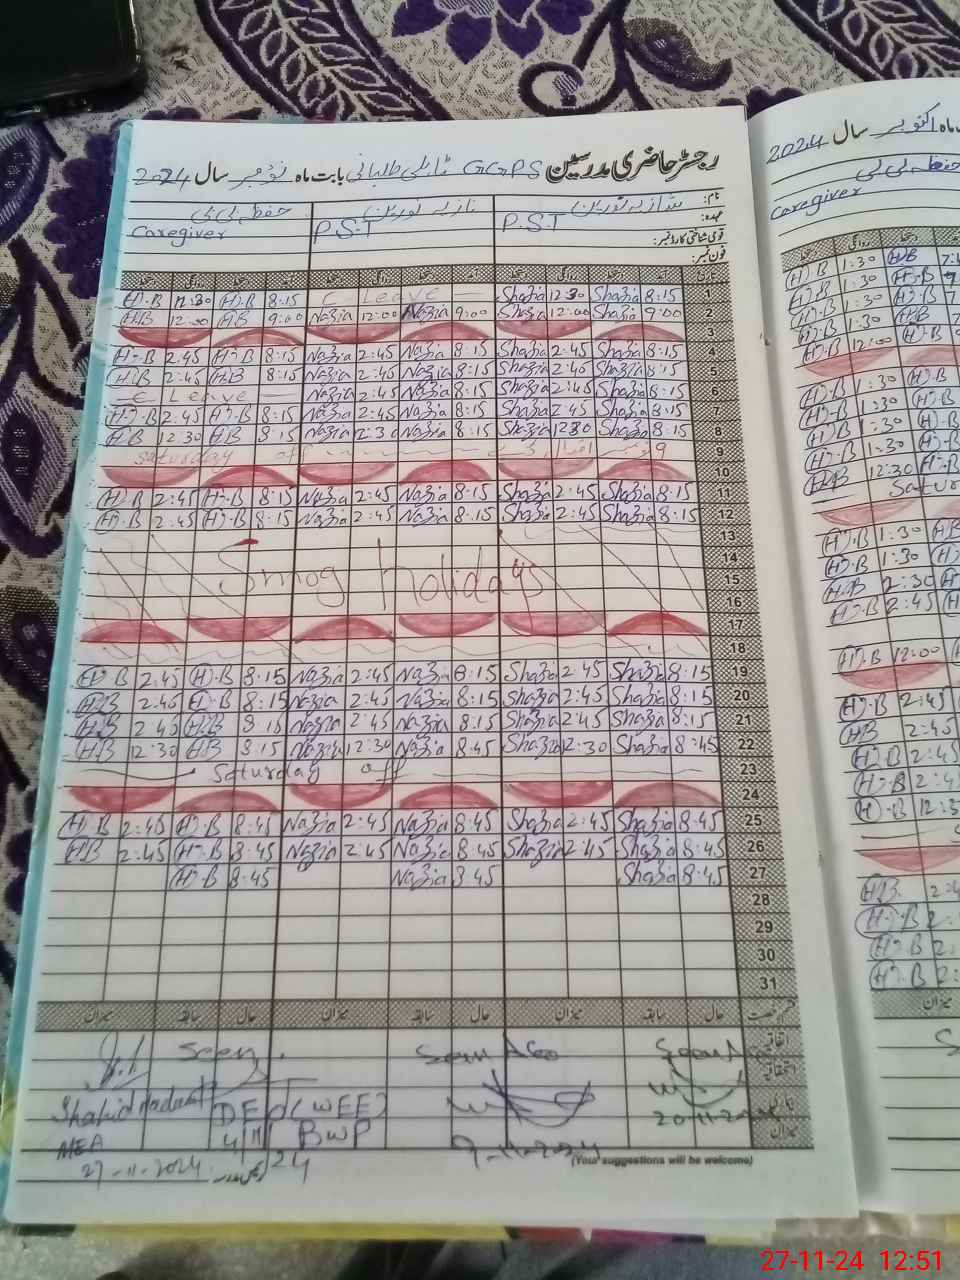 رجسٹر حاضری مدرسین GGPS ٹاہلی طلبانی بابت ماہ نومبر سال 2024
نام: شازیہ نورین نازیہ نورین حفظہ بی بی
عہدہ: P.S.T P.S.T Caregiver
قومی شناختی کارڈ نمبر:
فون نمبر:
تاریخ آمد دستخط روانگی دستخط آمد دستخط روانگی دستخط آمد دستخط روانگی دستخط
H.B 12:30 H.B 8:15 C-Leave Shazia 12:30 Shazia 8:15 1
H.B 12:00 H.B 9:00 Nazia 12:00 Nazia 9:00 Shazia 12:00 Shazia 9:00 2
3
H.B 2:45 H.B 8:15 Nazia 2:45 Nazia 8:15 Shazia 2:45 Shazia 8:15 4
H.B 2:45 H.B 8:15 Nazia 2:45 Nazia 8:15 Shazia 2:45 Shazia 8:15 5
C Leave Nazia 2:45 Nazia 8:15 Shazia 2:45 Shazia 8:15 6
H.B 2:45 H.B 8:15 Nazia 2:45 Nazia 8:15 Shazia 2:45 Shazia 8:15 7
H.B 12:30 H.B 8:15 Nazia 12:30 Nazia 8:15 Shazia 12:30 Shazia 8:15 8
Saturday off 9 نومبر اقبال ڈے 9
10
H.B 2:45 H.B 8:15 Nazia 2:45 Nazia 8:15 Shazia 2:45 Shazia 8:15 11
H.B 2:45 H.B 8:15 Nazia 2:45 Nazia 8:15 Shazia 2:45 Shazia 8:15 12
13
14
Smog holidays 15
16
17
18
H.B 2:45 H.B 8:15 Nazia 2:45 Nazia 8:15 Shazia 2:45 Shazia 8:15 19
H.B 2:45 H.B 8:15 Nazia 2:45 Nazia 8:15 Shazia 2:45 Shazia 8:15 20
H.B 2:45 H.B 8:15 Nazia 2:45 Nazia 8:15 Shazia 2:45 Shazia 8:15 21
H.B 12:30 H.B 8:15 Nazia 12:30 Nazia 8:45 Shazia 12:30 Shazia 8:45 22
Saturday off 23
24
H.B 2:45 H.B 8:45 Nazia 2:45 Nazia 8:45 Shazia 2:45 Shazia 8:45 25
H.B 2:45 H.B 8:45 Nazia 2:45 Nazia 8:45 Shazia 2:45 Shazia 8:45 26
H.B 8:45 Nazia 8:45 Shazia 8:45 27
28
29
30
31
قسم رخصت حال سابقہ میزان حال سابقہ میزان حال سابقہ میزان
اتفاقیہ
Seen Seen AEO Seen
Shahid DEO (WEE) 20-11-2024
MEA 4/11/24 BWP 9-11-2024
27-11-2024
میزان
(Your suggestions will be welcome)
ماہ اکتوبر سال 2024
حفظہ بی بی
Caregiver
H.B 1:30 H.B
H.B 1:30 H.B
H.B 1:30 H.B
H.B 1:30 H.B
H.B 12:00 H.B
H.B 1:30 H.B
H.B 1:30 H.B
H.B 1:30 H.B
H.B 1:30 H.B
H.B 12:30 H.B
H.B 1:30
H.B 1:30
H.B 2:30
H.B 2:45
H.B 12:00
H.B 2:45
H.B 2:45
H.B 2:45
H.B
H.B
H.B
H.B
H.B
H.B
میزان
27-11-24 12:51